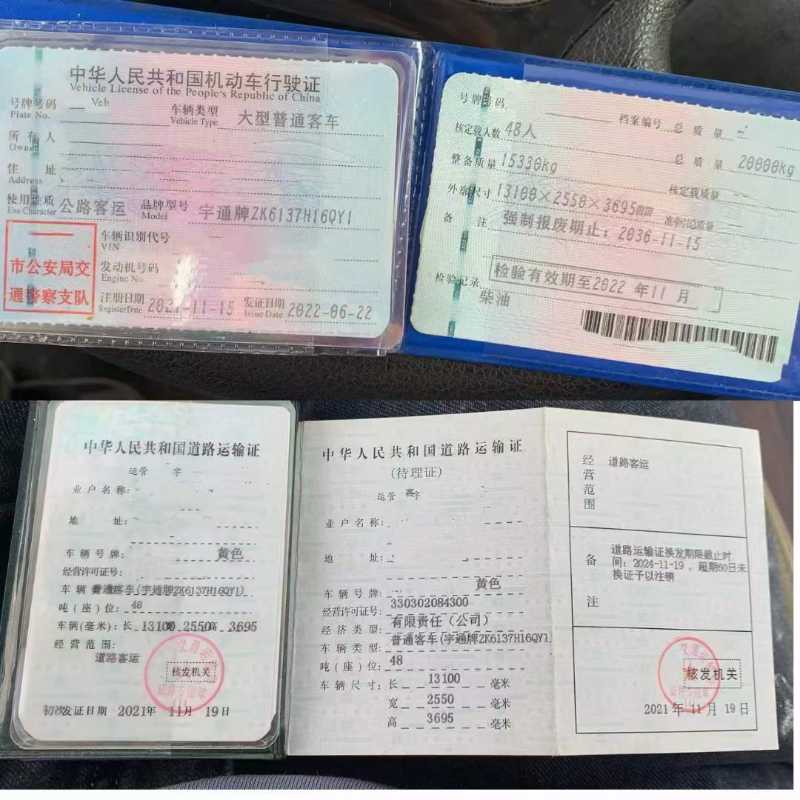 中华人民共和国机动车行驶证
Vehicle License of the People's Republic of China
号牌号码
Plate No.
Veh
车辆类型
Vehicle Type
大型普通客车
所有人
Owner
住址
Address
使用性质
Use Character
公路客运
品牌型号
Model
宇通牌ZK6137H16QY1
车辆识别代号
VIN
市公安局交
通警察支队
发动机号码
Engine No.
注册日期
Register Date
2021-11-15
发证日期
Issue Date
2022-06-22
号牌号码
档案编号
核定载人数 48人
总质量
20000kg
整备质量 15330kg
核定载质量
外廓尺寸 13100×2550×3695mm
准牵引总质量
备注 强制报废期止：2036-11-15
检验记录
检验有效期至2022年11月
柴油
中华人民共和国道路运输证
运管 字
业户名称：
地址：
车辆号牌： 黄色
经营许可证号：
车辆 普通客车(宇通牌ZK6137H16QY1)
吨(座)位： 48
车辆(毫米)：长 13100 2550 3695
经营范围：
道路客运
核发机关
初次发证日期 2021年 11月 19日
中华人民共和国道路运输证
(待理证)
运管 字
业户名称：
地址：
车辆号牌： 黄色
经营许可证号： 330302084300
经济类型： 有限责任（公司）
车辆类型： 普通客车(宇通牌ZK6137H16QY1)
吨(座)位： 48
车辆尺寸：长 13100 毫米
宽 2550 毫米
高 3695 毫米
经营范围
道路客运
备注
道路运输证换发期限截止时
间：2024-11-19，超期60日未
换证予以注销
核发机关
2021年 11月 19日